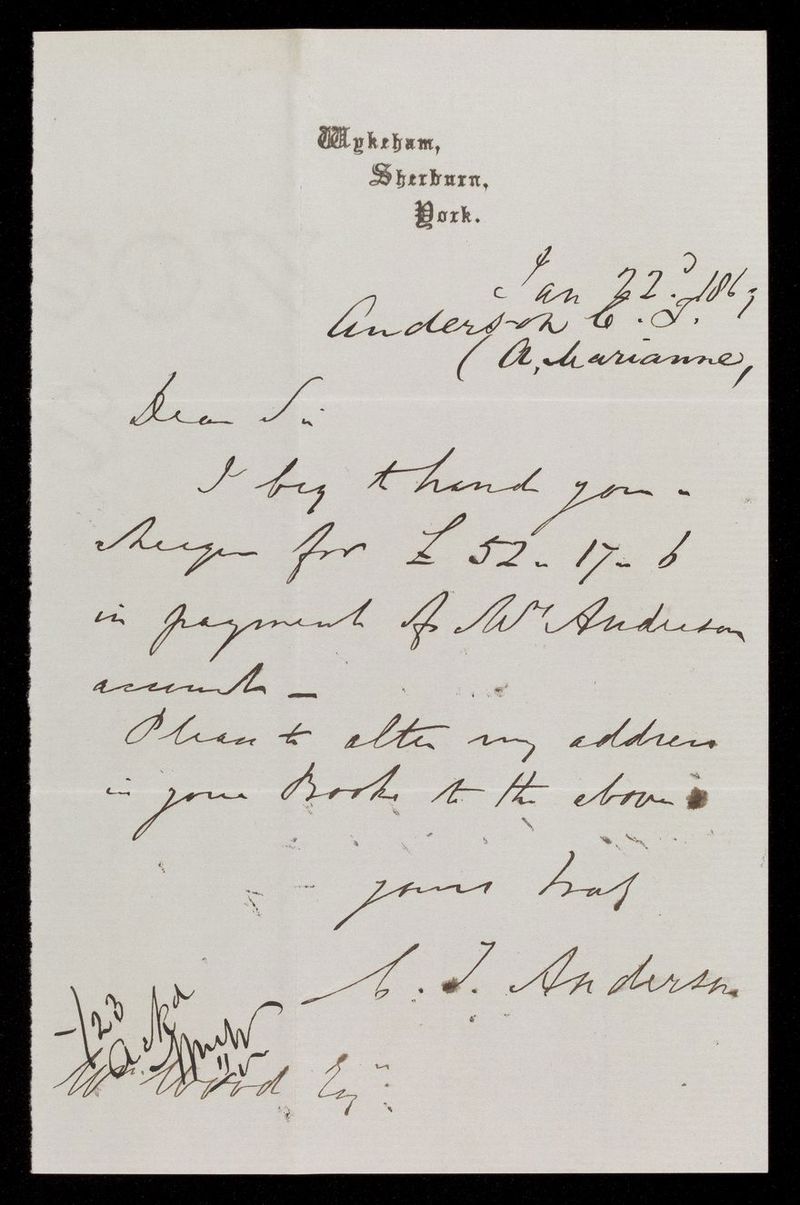 Wykeham,
Sherburn,
York.
Jan 22d. 1869
Anderson C. T.
(A, Marianne,
Dear Sir
I beg to hand you a
cheque for £ 52 " 17 " 6
in payment of Mrs Anderson
account —
Please to alter my address
in your Books to the above
yours truly
C. T. Anderson
1/23
Ackd
Wm. Wood Esqr.